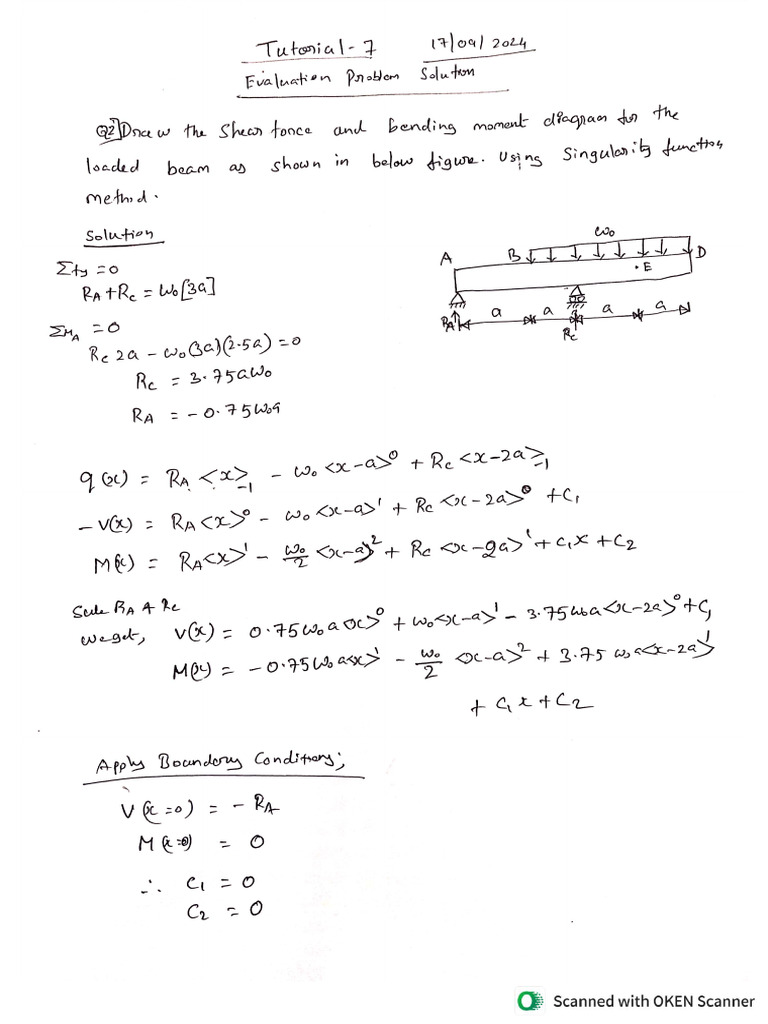 Tutorial-7 17/09/2024
Evaluation Problem Solution
Q2] Draw the Shear force and bending moment diagram for the
loaded beam as shown in below figure. Using Singularity function
method.
Solution
Σfy = 0
RA + RC = W0[3a]
ΣMA = 0
RC 2a - w0(3a)(2.5a) = 0
RC = 3.75aw0
RA = -0.75w0a
w0
A B D
E
a a a a
RA RC
q(x) = RA <x>-1 - w0 <x-a>^0 + RC <x-2a>-1
-V(x) = RA<x>^0 - w0<x-a>^1 + RC <x-2a>^0 + C1
M(x) = RA<x>^1 - w0/2 <x-a>^2 + RC <x-2a>^1 + C1x + C2
RA & RC
we get, V(x) = 0.75w0a<x>^0 + w0<x-a>^1 - 3.75w0a<x-2a>^0 + C1
M(x) = -0.75w0a<x>^1 - w0/2 <x-a>^2 + 3.75 w0a<x-2a>^1
+ C1x + C2
Apply Boundary Conditions;
V(x=0) = - RA
M(x=0) = 0
∴ C1 = 0
C2 = 0
Scanned with OKEN Scanner